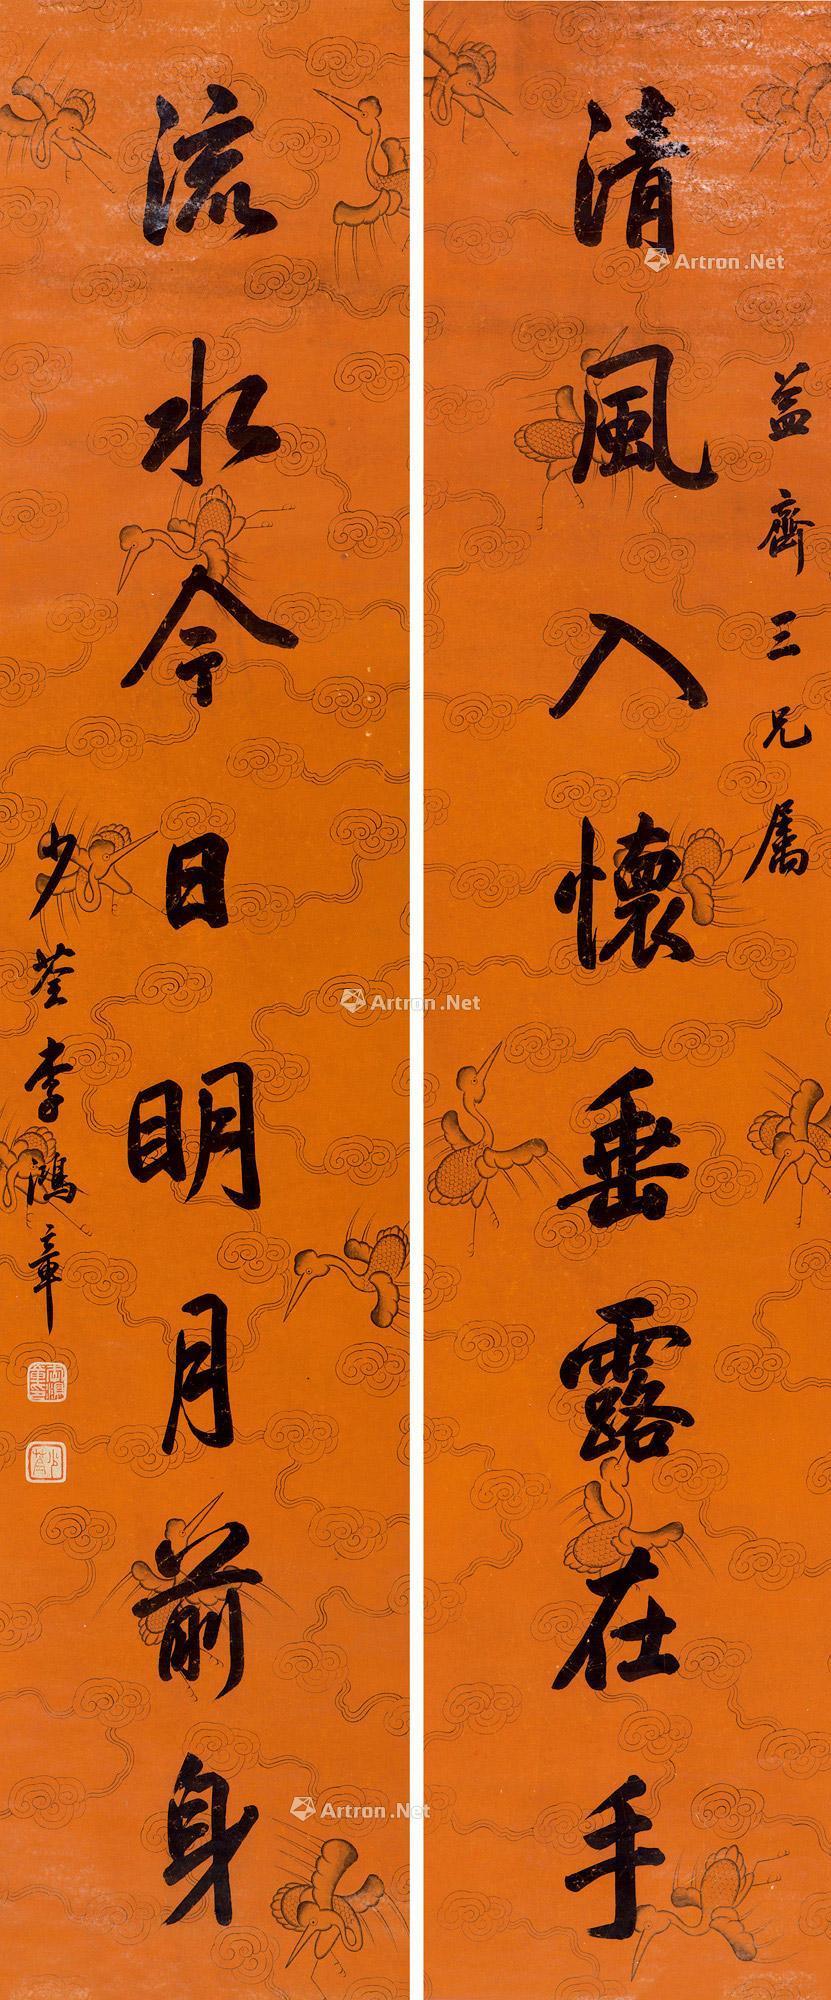 益齋三兄属
清風入懷垂露在手
流水今日明月前身
少荃李鴻章
李鴻章印
少荃
Artron.Net
Artron.Net
Artron.Net